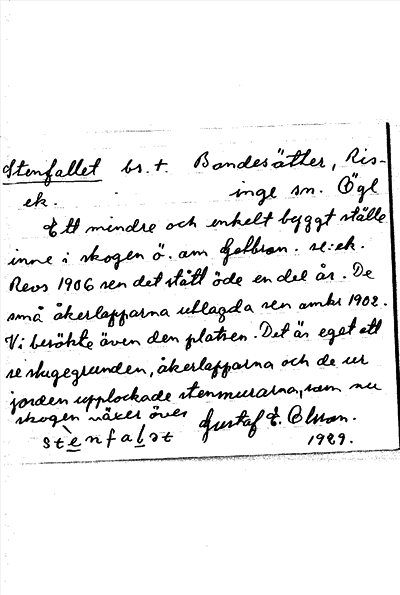 Stenfallet bs. t. Bondesätter, Ris-
ek. inge sn. Ögl
Ett mindre och enkelt byggt ställe
inne i skogen ö. om se: ek.
Revs 1906 sen det stått öde en del år. De
små åkerlapparna utlagda sen omkr 1902.
Vi besökte även den platsen. Det är eget att
se stugegrunden, åkerlapparna och de ur
jorden upplockade stenmurarna, som nu
skogen växer över Gustaf E. Olsson.
stènfalət 1929.